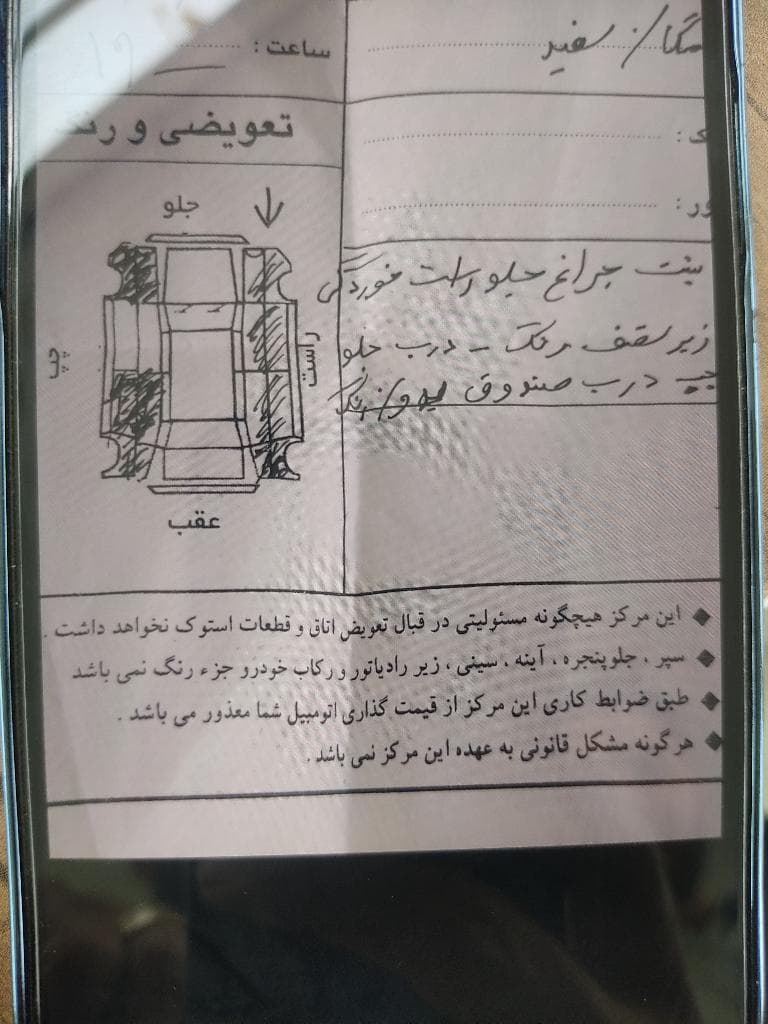 سفید
ساعت :
تعویضی و رنگ
ک :
ور :
جلو
راست
چپ
عقب
چراغ جلو راست خوردگی
زیر سقف رنگ - درب جلو
چپ درب صندوق لیدور / رنگ
◆ این مرکز هیچگونه مسئولیتی در قبال تعویض اتاق و قطعات استوک نخواهد داشت .
◆ سپر ، جلوپنجره ، آینه ، سینی ، زیر رادیاتور و رکاب خودرو جزء رنگ نمی باشد
◆ طبق ضوابط کاری این مرکز از قیمت گذاری اتومبیل شما معذور می باشد .
◆ هرگونه مشکل قانونی به عهده این مرکز نمی باشد .